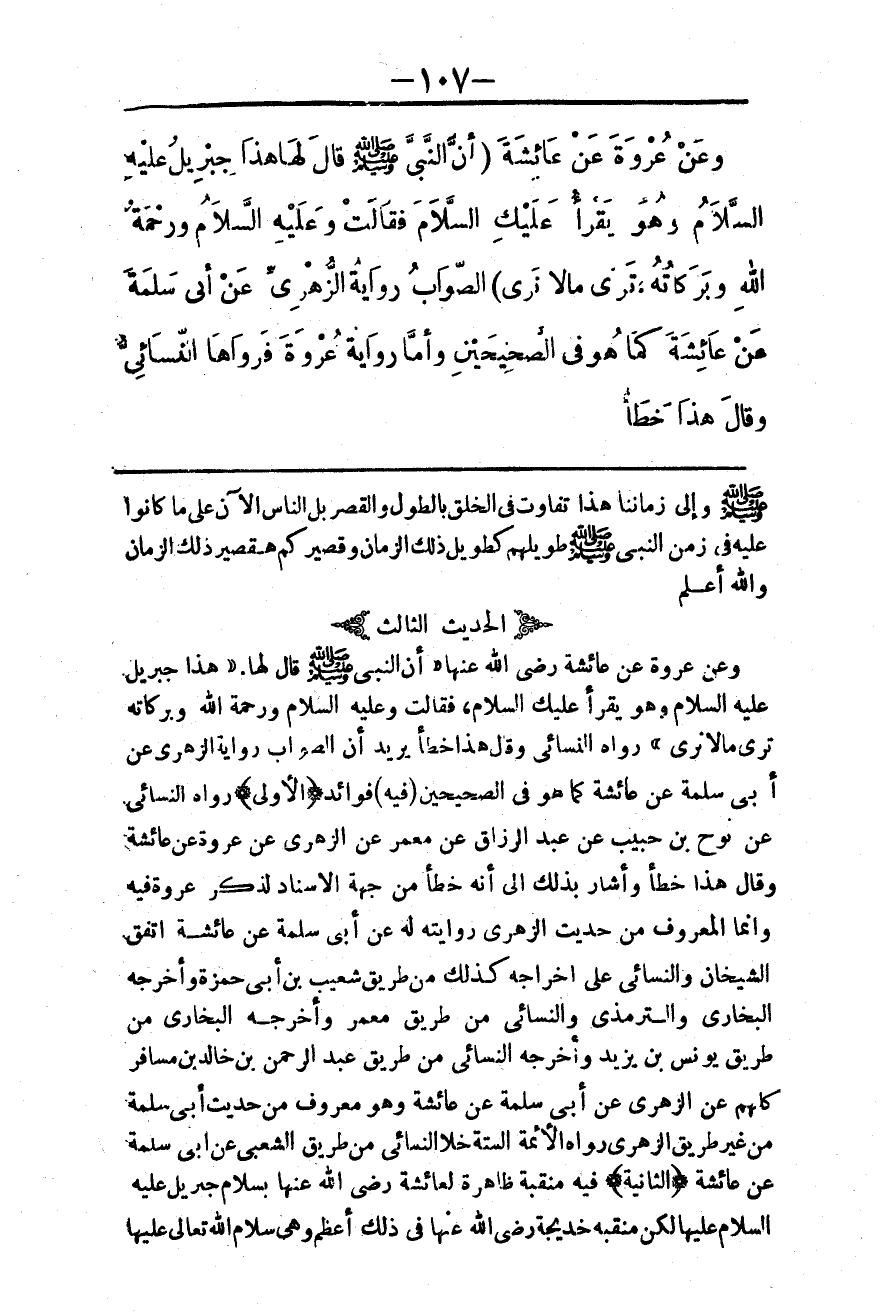 —١٠٧—
وعَنْ عُرْوَةَ عَنْ عَائِشَةَ (أنَّ النَّبيَّ ﷺ قالَ لَهَا هذَا جِبْرِيلُ عليْهِ
السَّلَامُ وهُوَ يَقْرأُ عَلَيْكِ السَّلَامَ فقالَتْ وعَلَيْهِ السَّلَامُ ورحْمَةُ
اللهِ وبَرَكاتُهُ، تَرَى مالا نَرى) الصّوَابُ روايةُ الزُّهْرِىِّ عَنْ أبى سَلمَةَ
عَنْ عَائِشَةَ كمَا هُو فى الصَّحِيحَيْنِ وأمَّا روايَةُ عُرْوَةَ فَرواهَا النَّسَائِىُّ
وقالَ هذَا خَطَأٌ
ﷺ وإلى زماننا هذا تفاوت فى الخلق بالطول والقصر بل الناس الآن على ما كانوا
عليه فى زمن النبى ﷺ طويلهم كطويل ذلك الزمان وقصيركم هـقصير ذلك الزمان
والله أعـلم
الحديث الثالث
وعن عروة عن عائشة رضى الله عنها« أن النبى ﷺ قال لها.« هذا جبريل
عليه السلام وهو يقرأ عليك السلام، فقالت وعليه السلام ورحمة الله وبركاته
ترى مالا نرى » رواه النسائى وقل هذا خطأ يريد أن الصواب رواية الزهرى عن
أبى سلمة عن عائشة كما هو فى الصحيحين (فيه) فوائد ﴿الأولى﴾ رواه النسائى
عن نوح بن حبيب عن عبد الرزاق عن معمر عن الزهرى عن عروة عن عائشة
وقال هذا خطأ وأشار بذلك الى أنه خطأ من جهة الاسناد لذكر عروة فيه
وانما المعروف من حديث الزهرى روايته له عن أبى سلمة عن عائشـة اتفق
الشيخان والنسائى على اخراجه كذلك من طريق شعيب بن أبى حمزة وأخرجه
البخارى والـترمذى والنسائى من طريق معمر وأخرجـه البخارى من
طريق يونس بن يزيد وأخرجه النسائى من طريق عبد الرحمن بن خالد بن مسافر
كلهم عن الزهرى عن أبى سلمة عن عائشة وهو معروف من حديث أبى سلمة
من غير طريق الزهرى رواه الأئمة الستة خلا النسائى من طريق الشعبى عن ابى سلمة
عن عائشة ﴿الثانية﴾ فيه منقبة ظاهرة لعائشة رضى الله عنها بسلام جبريل عليه
السلام عليها لكن منقبه خديجة رضى الله عنها فى ذلك أعظم وهى سلام الله تعالى عليها